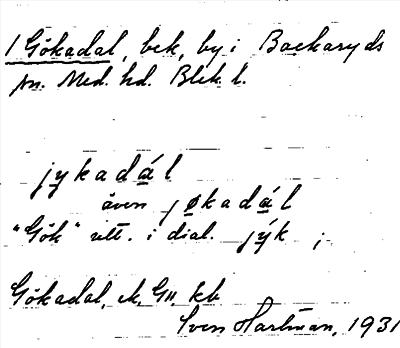 1 Gökadal, bek, by i Backaryds
sn. Med. hd. Blek. l.
jykadál
även jøkadál
"Gök" utt. i dial. jýk ;
Gökadal, ek, G11, kb
Sven Hartman, 1931